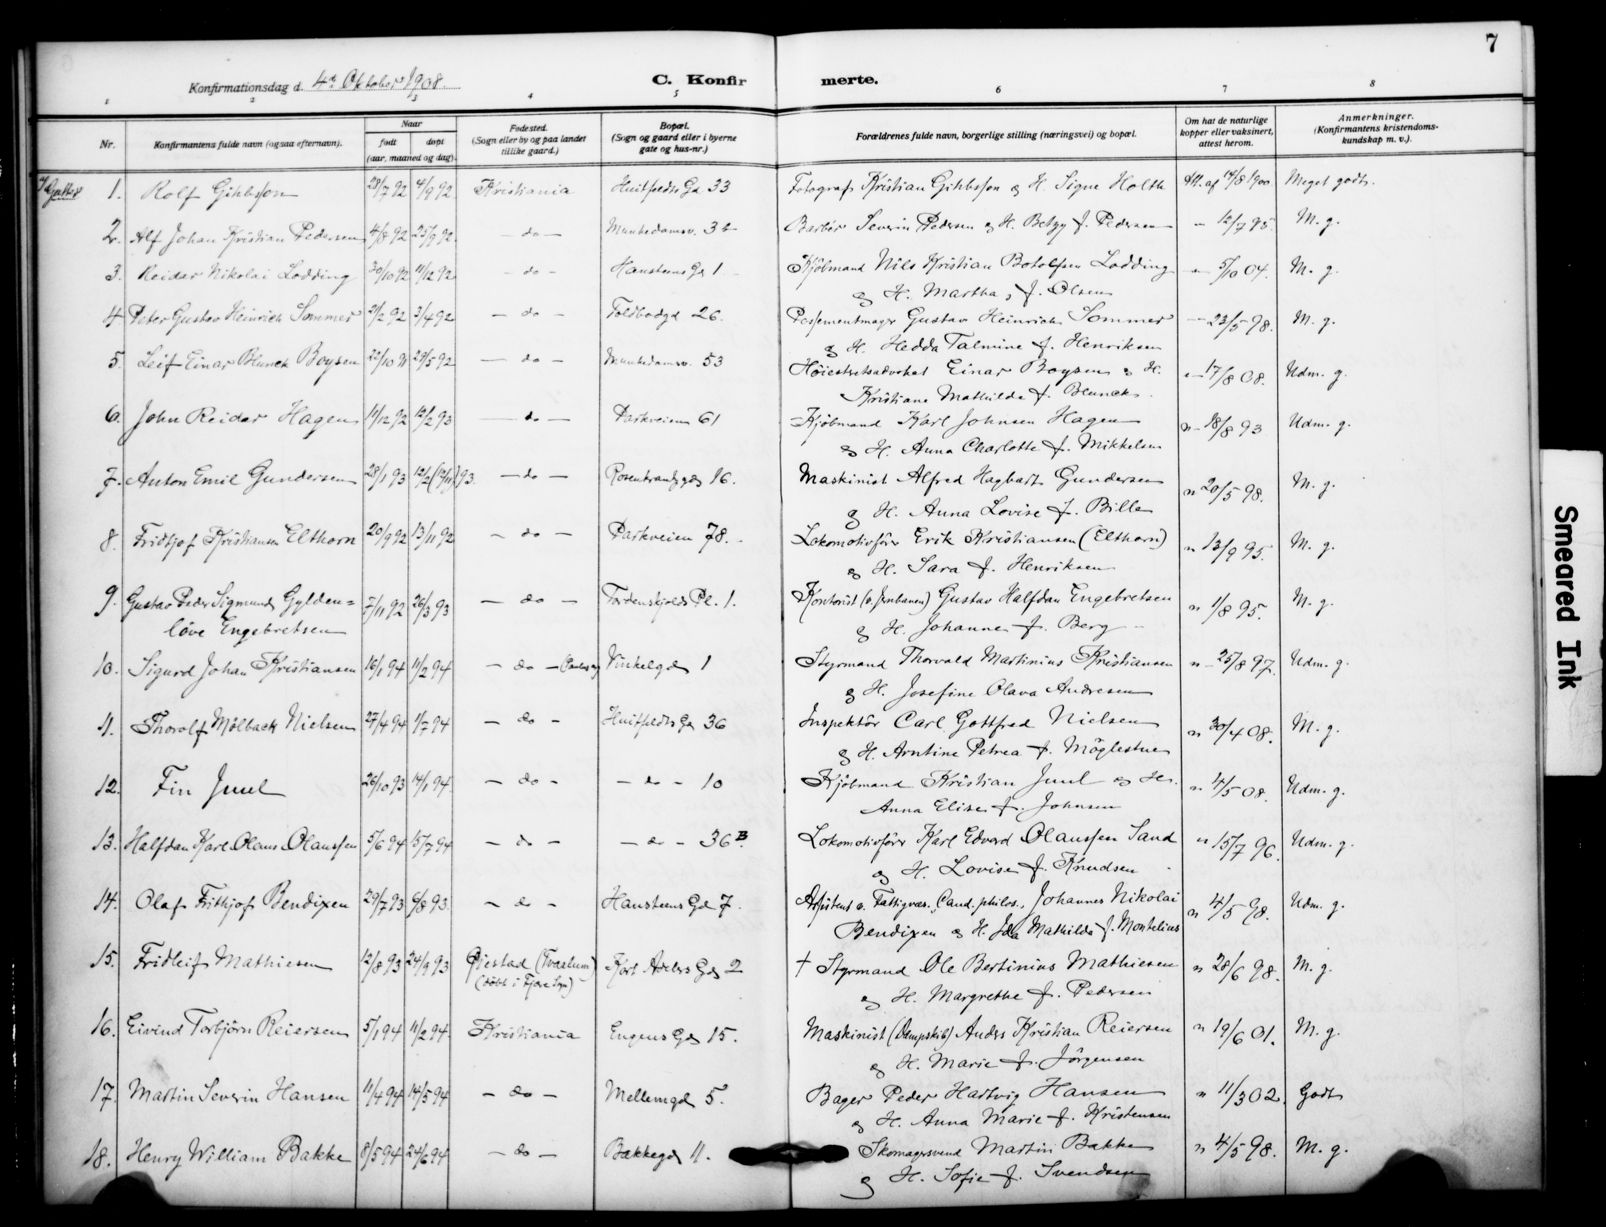 7
Konfirmationsdag d. 4de Oktober 1908.
C. Konfirmerte.
1 2 3 4 5 6 7 8
Nr.
Konfirmantens fulde navn (og saa efternavn).
Naar
født
døpt
(aar, maaned og dag).
Fødested.
(Sogn eller by og paa landet
tillike gaard.)
Bopæl.
(Sogn og gaard eller i byerne
gate og hus-nr.)
Forældrenes fulde navn, borgerlige stilling (næringsvei) og bopæl.
Om hat de naturlige
kopper eller vaksinert,
attest herom.
Anmerkninger.
(Konfirmantens kristendoms-
kundskap m. v.).
Gutter
1. Rolf Gihbsson 28/7 92 4/9 92 Kristiania Huitfeldts Gd 33 Fotograf Kristian Gihbsson & H. Signe Holth Att. af 14/8 1900. Meget godt.
2. Alf Johan Kristian Pedersen 4/8 92 25/9 92 - do - Munkedamsv. 3 b Barbér Severin Pedersen & H. Betzy f. Pedersen - 12/7 95. M. g.
3. Reidar Nikolai Lodding 30/10 92 11/12 92 - do - Hansteens Gd 1 Kjöbmand Nils Kristian Botolfsen Lodding - 5/10 04. M. g.
& H. Martha, f. Olsen
4 Peter Gustav Heinrich Sommer 21/2 92 3/4 92 - do - Toldbodgd 26. Possementmager Gustav Heinrich Sommer - 23/5 98. M. g.
& H. Hedda Talmine f. Henriksen
5. Leif Einar Blunck Boysen 22/10 91 29/5 92 - do - Munkedamsv. 53 Höiesteretsadvokat Einar Boysen & H. - 17/8 08. Udm. g.
Kristiane Mathilde f. Blunck.
6. John Reidar Hagen 11/12 92 12/2 93 - do - Parkveien 61 Kjöbmand Karl Johnsen Hagen " - 18/8 93 Udm. g.
& H. Anna Charlotte f. Mikkelsen
7. Anton Emil Gundersen 28/1 93 12/2 (12/11) 93. - do - Rosenkrantzgd 16. Maskinist Alfred Hagbart Gundersen " 20/5 98. M. g.
& H. Anna Lovise f. Bille
8. Fridtjof Kristiansen Elthorn 20/9 92 13/11 92 - do - Parkveien 78. Lokomotivförer Erik Kristiansen (Elthorn) " 13/9 95. M. g.
& H. Sara f. Henriksen
9. Gustav Peder Sigmund Gylden= 7/11 92 26/3 93 - do - Tordenskjolds Pl. 1. Kontorist (v. Jernbanen) Gustav Halfdan Engebretsen " 1/8 95. M. g.
löve Engebretsen & H. Johanne f. Berg
10. Sigurd Johan Kristiansen 16/1 94 11/2 94 - do - Vinkelgd 1 Styrmand Thorvald Martinius Kristiansen " - 25/8 97. Udm. g.
& H. Josefine Olava Andresen
11. Thorolf Mølback Nielsen 27/4 94 1/7 94 - do - Huitfeldts Gd 36 Inspektör Carl Gottfred Nielsen " 30/4 08. M. g.
& H. Arntine Petrea f. Möglestue
12. Fin Juul 26/10 93 14/1 94. - do - - do - 10 Kjöbmand Kristian Juul og H. " 4/5 08. Udm. g.
Anna Elise f. Johnsen
13. Halfdan Karl Olaus Olaussen 5/6 94 15/7 94 - do - - do - 36 B. Lokomotivförer Karl Edvard Olaussen Sand " 15/7 96. Udm. g.
og H. Lovise f. Knudsen
14. Olaf Frithjof Bendixen 29/7 93 6/8 93 - do - Hansteens Gd 7. Assistent v. Fattigvæs., Cand. philos., Johannes Nikolai " 4/5 98. Udm. g.
Bendixen & H. Ida Mathilde f. Montelius
15. Fridleif Mathiesen 12/8 93 24/9 93 Øiestad (Tvæstum) Kort Adelers Gd 2 † Styrmand Ole Bertinius Mathiesen " 28/6 98. M. g.
(döbt i Fjære Sogn) og H. Margrethe f. Pedersen
16. Eivind Torbjörn Reiersen 5/1 94 11/2 94. Kristiania Engens Gd 15. Maskinist (Dampskib) Anders Kristian Reiersen " 19/6 01. M. g.
og H. Marie f. Jörgensen
17. Martin Severin Hansen 11/4 94 14/5 94 - do - Mellemgd 5. Bager Peder Hartvig Hansen " 11/3 02. Godt
& H. Anna Marie f. Kristensen
18. Henry William Bakke 8/5 94 24/6 94 - do - Bakkegd 11. Skomagersvend Martin Bakke " 4/5 98. M. g.
& H. Sofie f. Svendsen
Smeared Ink